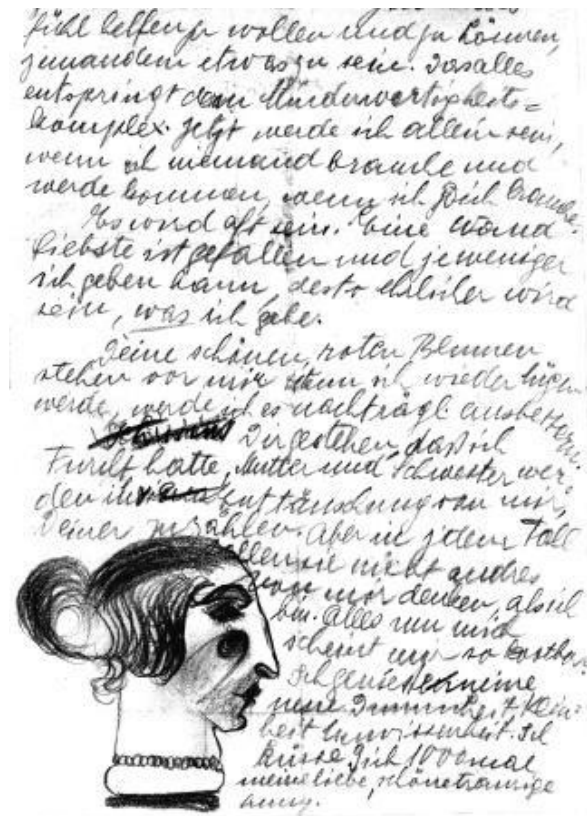 fühl helfen zu wollen und zu können,
jemandem etwas zu sein. Das alles
entspringt dem Minderwertigkeits=
komplex. Jetzt werde ich allein sein,
wenn ich niemand brauche und
werde kommen, wenn ich Dich brauche.
Es wird oft sein. Eine Wand
Liebste ist gefallen und je weniger
ich geben kann, desto ehrlicher wird
sein, was ich gebe.
Deine schönen, roten Blumen
stehen vor mir wenn ich wieder lügen
werde, werde ich es nachträgl. ausbessern
Dir gestehen, dass ich
Furcht hatte, Mutter und Schwester wer-
den ihre Enttäuschung von mir,
Deiner zu zählen. Aber in jedem Fall
sollen sie nicht andres
von mir denken, als ich
bin. Alles um mich
scheint mir so kostbar.
Ich geniesse meine
neue Dummheit Klein-
heit Unwissenheit. Ich
küsse Dich 1000 mal
meine liebe, schöne traurige
Anny.